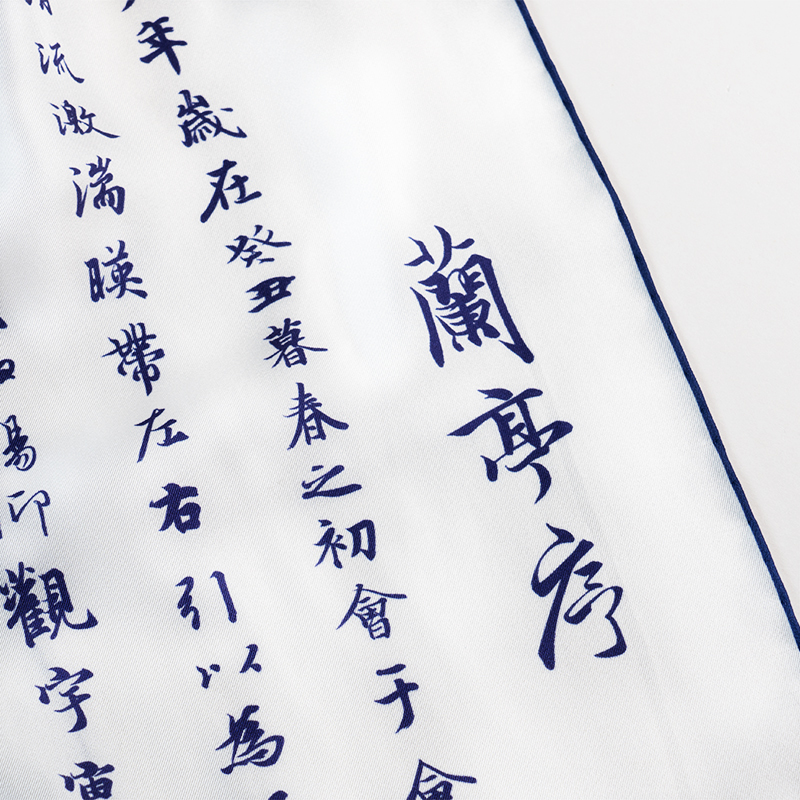 蘭亭序
年歲在癸丑暮春之初會于會
流激湍暎帶左右引以為
觀宇